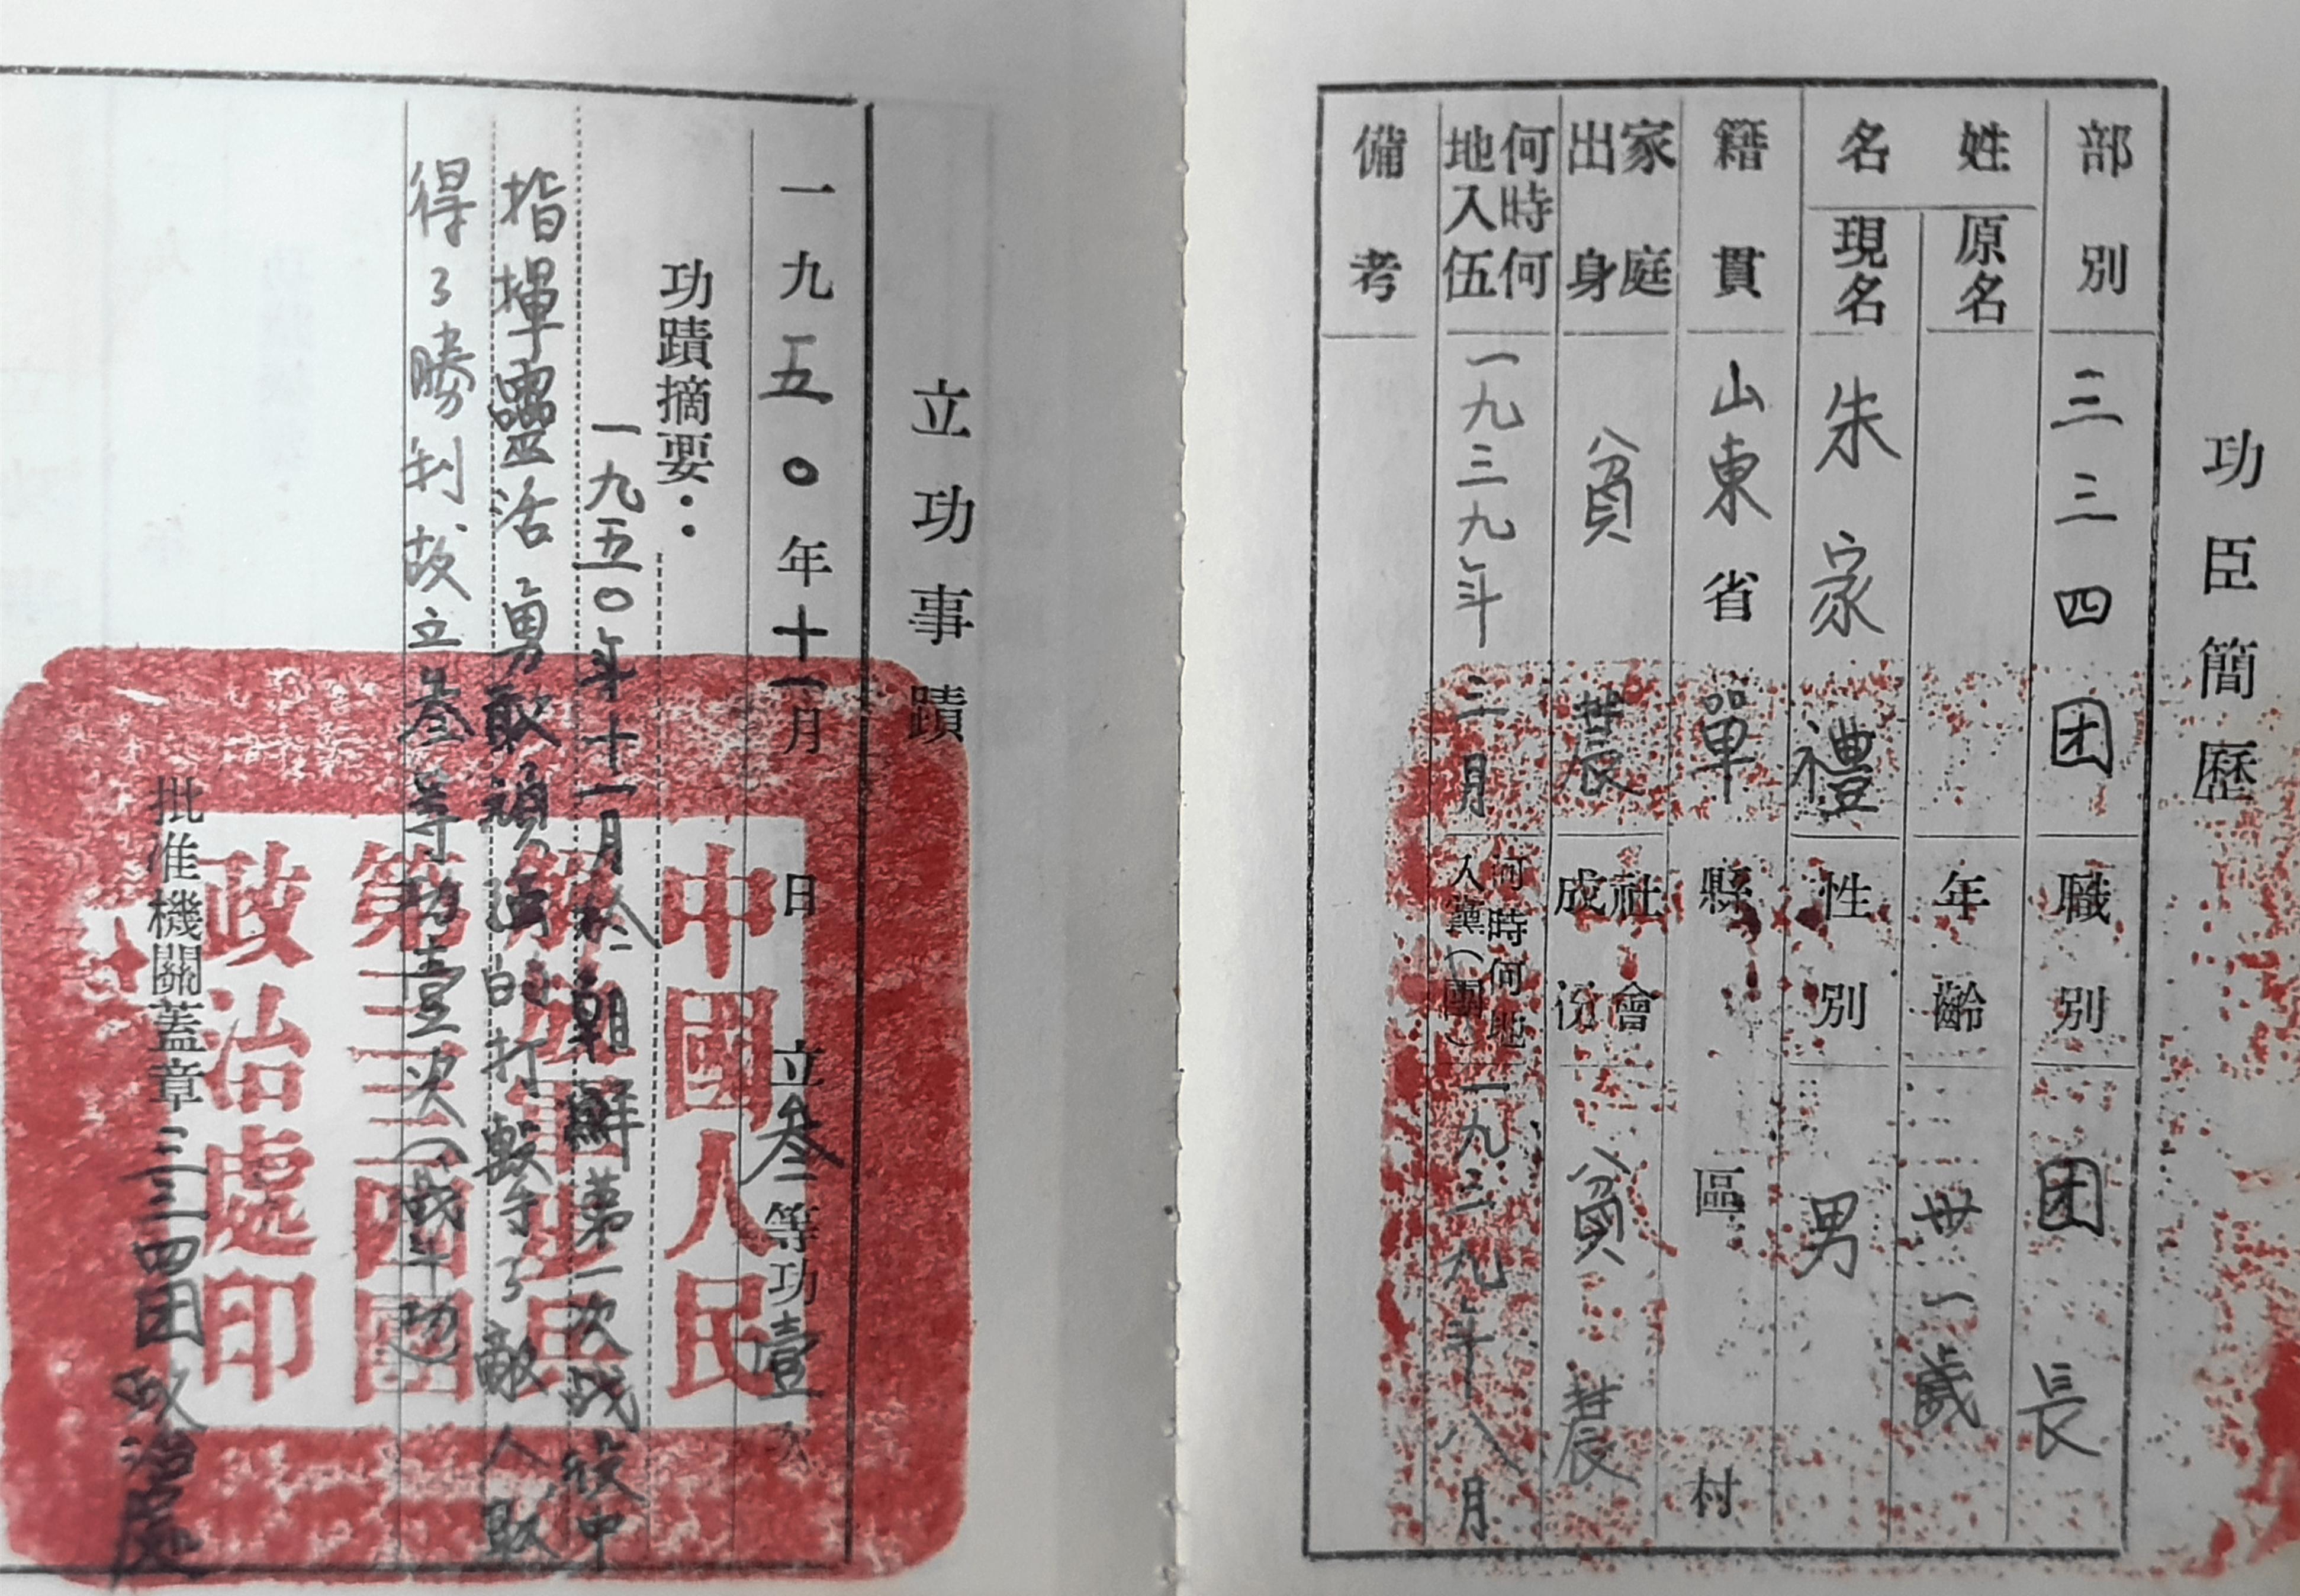 功臣簡歷
部別 三三四团 職別 团長
姓名 原名 年齡 卅一歲
現名 朱家禮 性別 男
籍貫 山東省單縣 區 村
家庭出身 貧農 社會成份 貧農
何時何地入伍 一九三九年三月 何時何地入黨(團) 一九三九年八月
備考
立功事蹟
一九五〇年十一月 日 立叁等功壹次
功蹟摘要：
一九五〇年十一月於朝鮮第一次战役中
指揮靈活勇敢頑强的打擊了敵人取
得了勝利故立叁等功壹次(战斗功)
批准機關蓋章 三三四团政治處
中國人民
解放軍步兵
第三三四團
政治處印